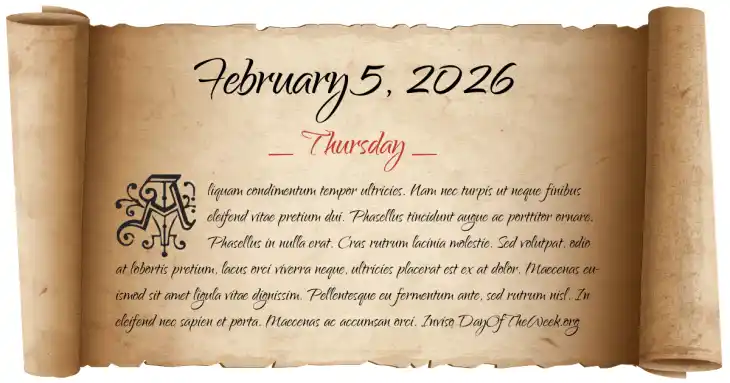 February 5, 2026
_ Thursday _
Aliquam condimentum tempor ultricies. Nam nec turpis ut neque finibus
eleifend vitae pretium dui. Phasellus tincidunt augue ac porttitor ornare.
Phasellus in nulla erat. Cras rutrum lacinia molestie. Sed volutpat, odio
at lobortis pretium, lacus orci viverra neque, ultricies placerat est ex at dolor. Maecenas eu-
ismod sit amet ligula vitae dignissim. Pellentesque eu fermentum ante, sed rutrum nisl. In
eleifend nec sapien et porta. Maecenas ac accumsan orci. Inviso DayOfTheWeek.org